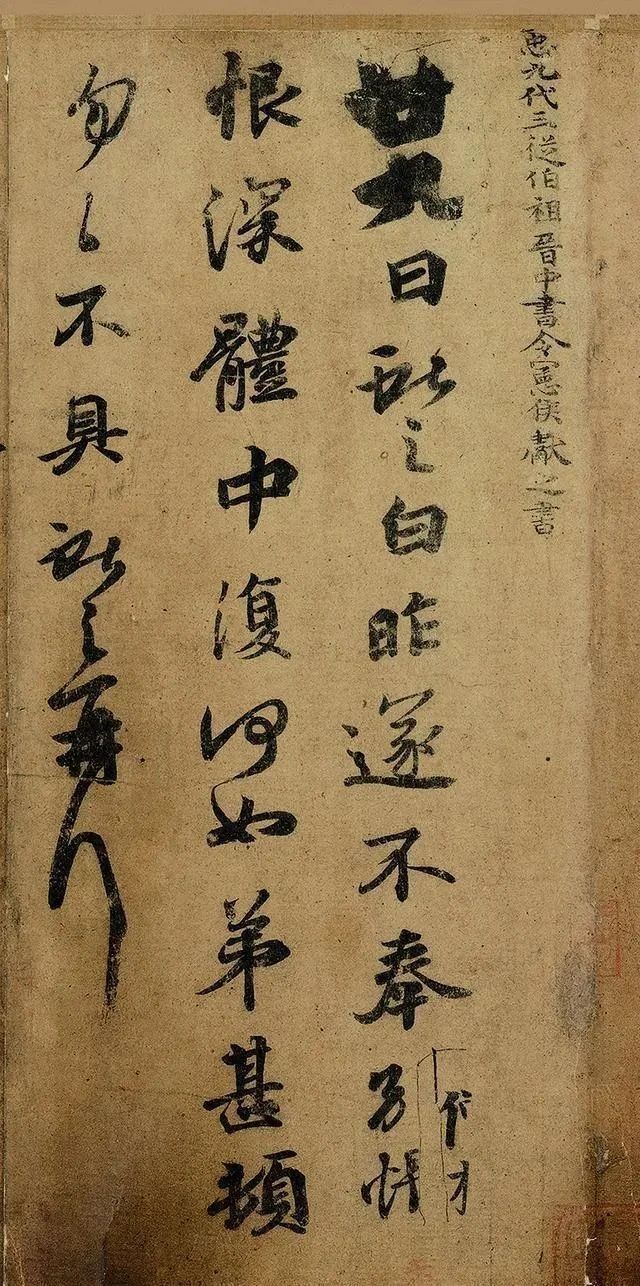 臣九代三從伯祖晉中書令憲侯獻之書
廿九日獻之白昨遂不奉別悵
恨深體中復何如弟甚頓
匆々不具獻之再拜